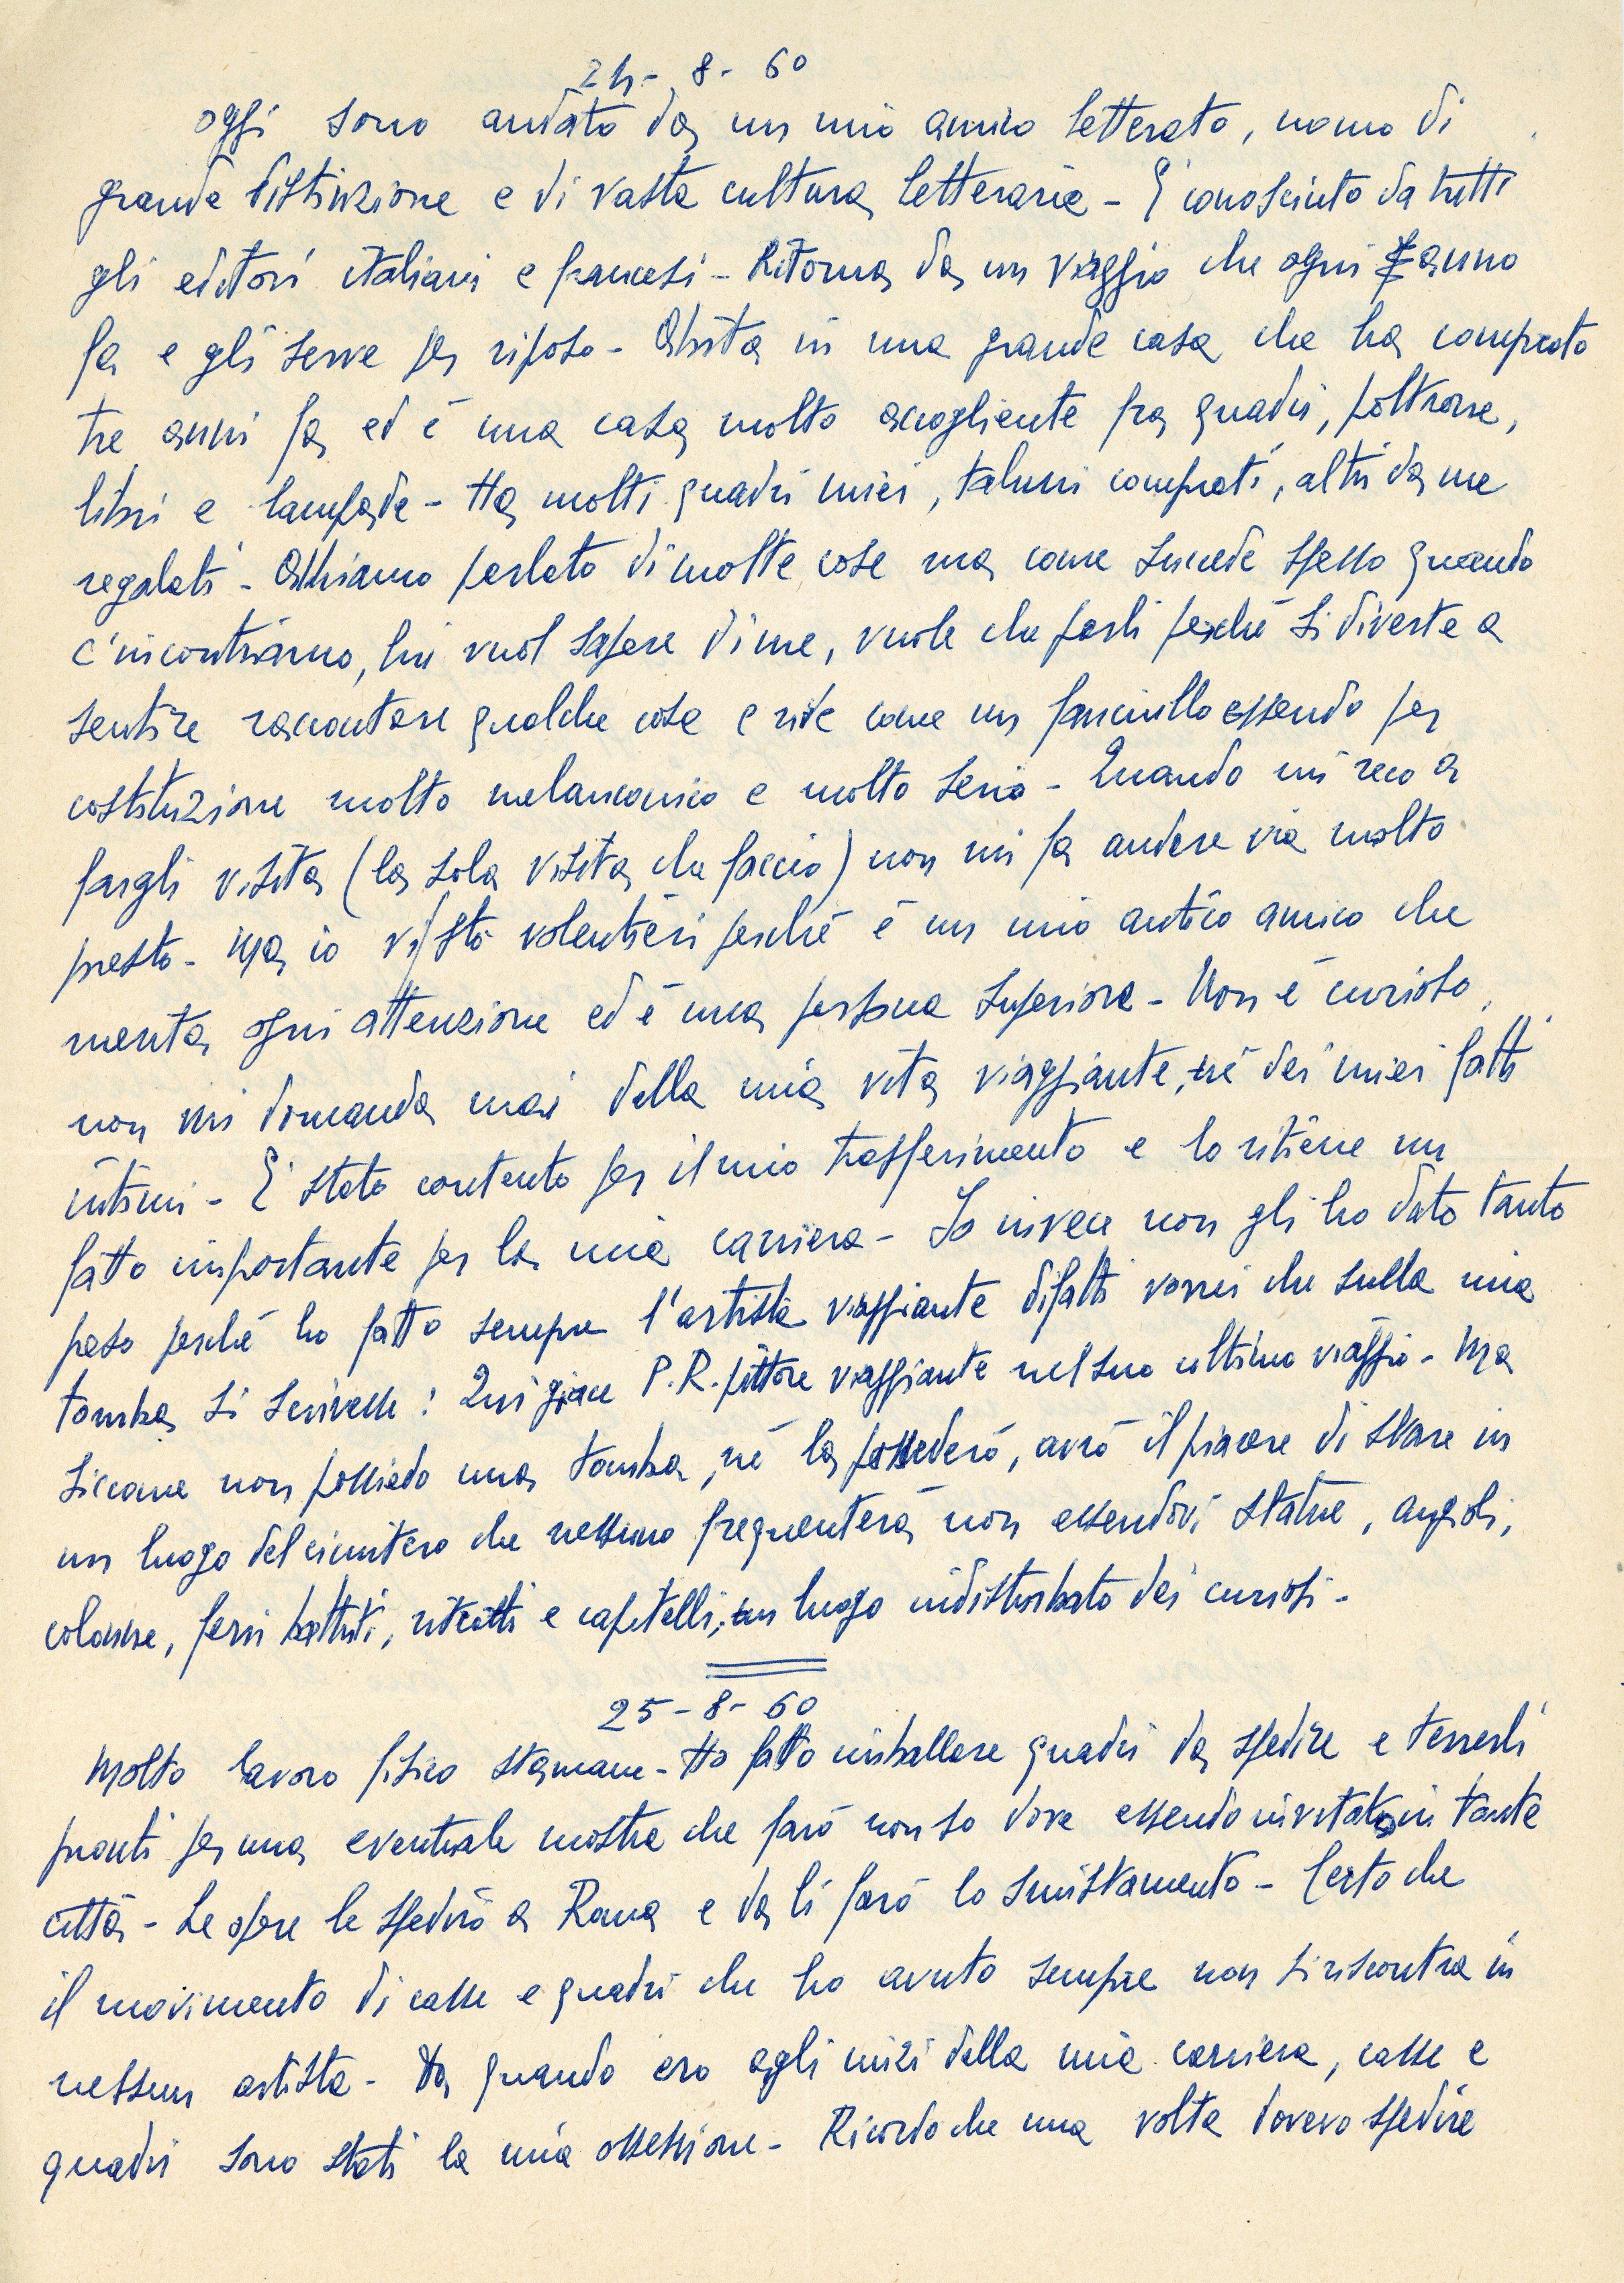 24-8-60
oggi sono andato da un mio amico letterato, uomo di
grande distinzione e di vasta cultura letteraria - È conosciuto da tutti
gli editori italiani e francesi - Ritorna da un viaggio che ogni anno
fa e gli serve per riposo - Abita in una grande casa che ha comprato
tre anni fa ed è una casa molto accogliente fra quadri, poltrone,
libri e lampade - Ha molti quadri miei, taluni comprati, altri da me
regalati - Abbiamo parlato di molte cose ma come succede spesso quando
c'incontriamo, lui vuol sapere di me, vuole che parli perché si diverte a
sentire raccontare qualche cosa e ride come un fanciullo essendo per
costituzione molto melanconico e molto serio - Quando mi reco a
fargli visita (la sola visita che faccio) non mi fa andare via molto
presto - Ma io vi sto volentieri perché è un mio antico amico che
merita ogni attenzione ed è una persona superiore - Non è curioso,
non mi domanda mai della mia vita viaggiante, né dei miei fatti
intimi - È stato contento per il mio trasferimento e lo ritiene un
fatto importante per la mia carriera - Io invece non gli ho dato tanto
peso perché ho fatto sempre l'artista viaggiante difatti vorrei che sulla mia
tomba si scrivesse: Qui giace P.R. pittore viaggiante nel suo ultimo viaggio - Ma
siccome non possiedo una tomba, né la possederò, avrò il piacere di stare in
un luogo del cimitero che nessuno frequenterà non essendovi statue, angioli,
colonne, ferri battuti, ritratti e capitelli, un luogo indisturbato dei curiosi -
25-8-60
Molto lavoro fisico stamane - Ho fatto imballare quadri da spedire e tenerli
pronti per una eventuale mostra che farò non so dove essendo invitato in tante
città - Le opere le spedirò a Roma e da lì farò lo smistamento - Certo che
il movimento di casse e quadri che ho avuto sempre non si riscontra in
nessun artista - Da quando ero agli inizi della mia carriera, casse e
quadri sono stati la mia ossessione - Ricordo che una volta dovevo spedire